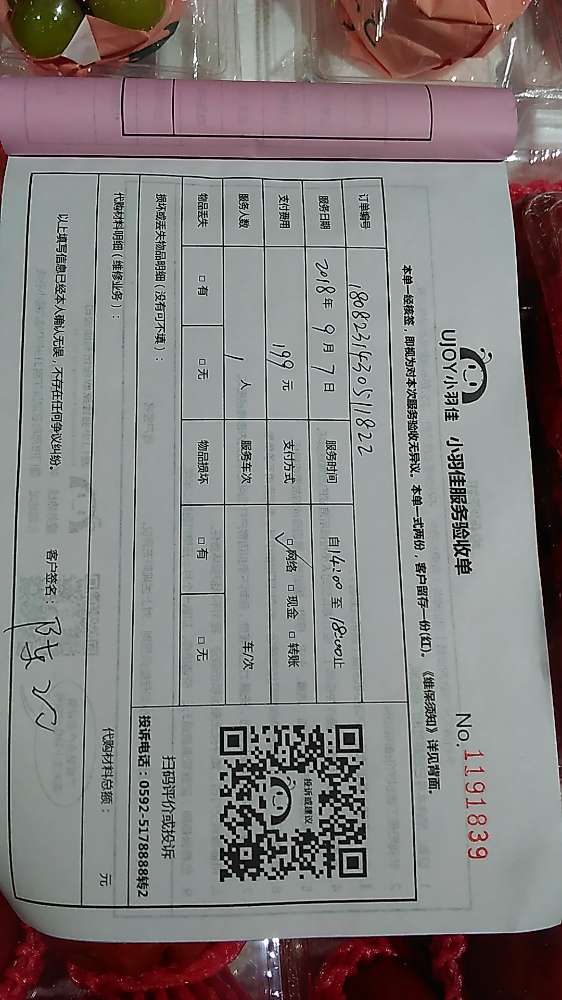 UJOY小羽佳 小羽佳服务验收单 No.1191839
本单一经核签,即视为对本次服务验收无异议。本单一式两份,客户留存一份(红)。《维保须知》详见背面。
订单编号 1808231430511822
服务日期 2018年9月7日 服务时间 自14:00至18:00止
支付费用 199元 支付方式 □网络 □现金 □转账
服务人数 1人 服务车次 车/次
物品丢失 □有 □无 物品损坏 □有 □无
损坏或丢失物品明细(没有可不填):
代购材料明细(维修业务): 代购材料总额: 元
以上填写信息已经本人确认无误,不存在任何争议纠纷。 客户签名:陈
投诉或建议
扫码评价或投诉
投诉电话:0592-5178888转2